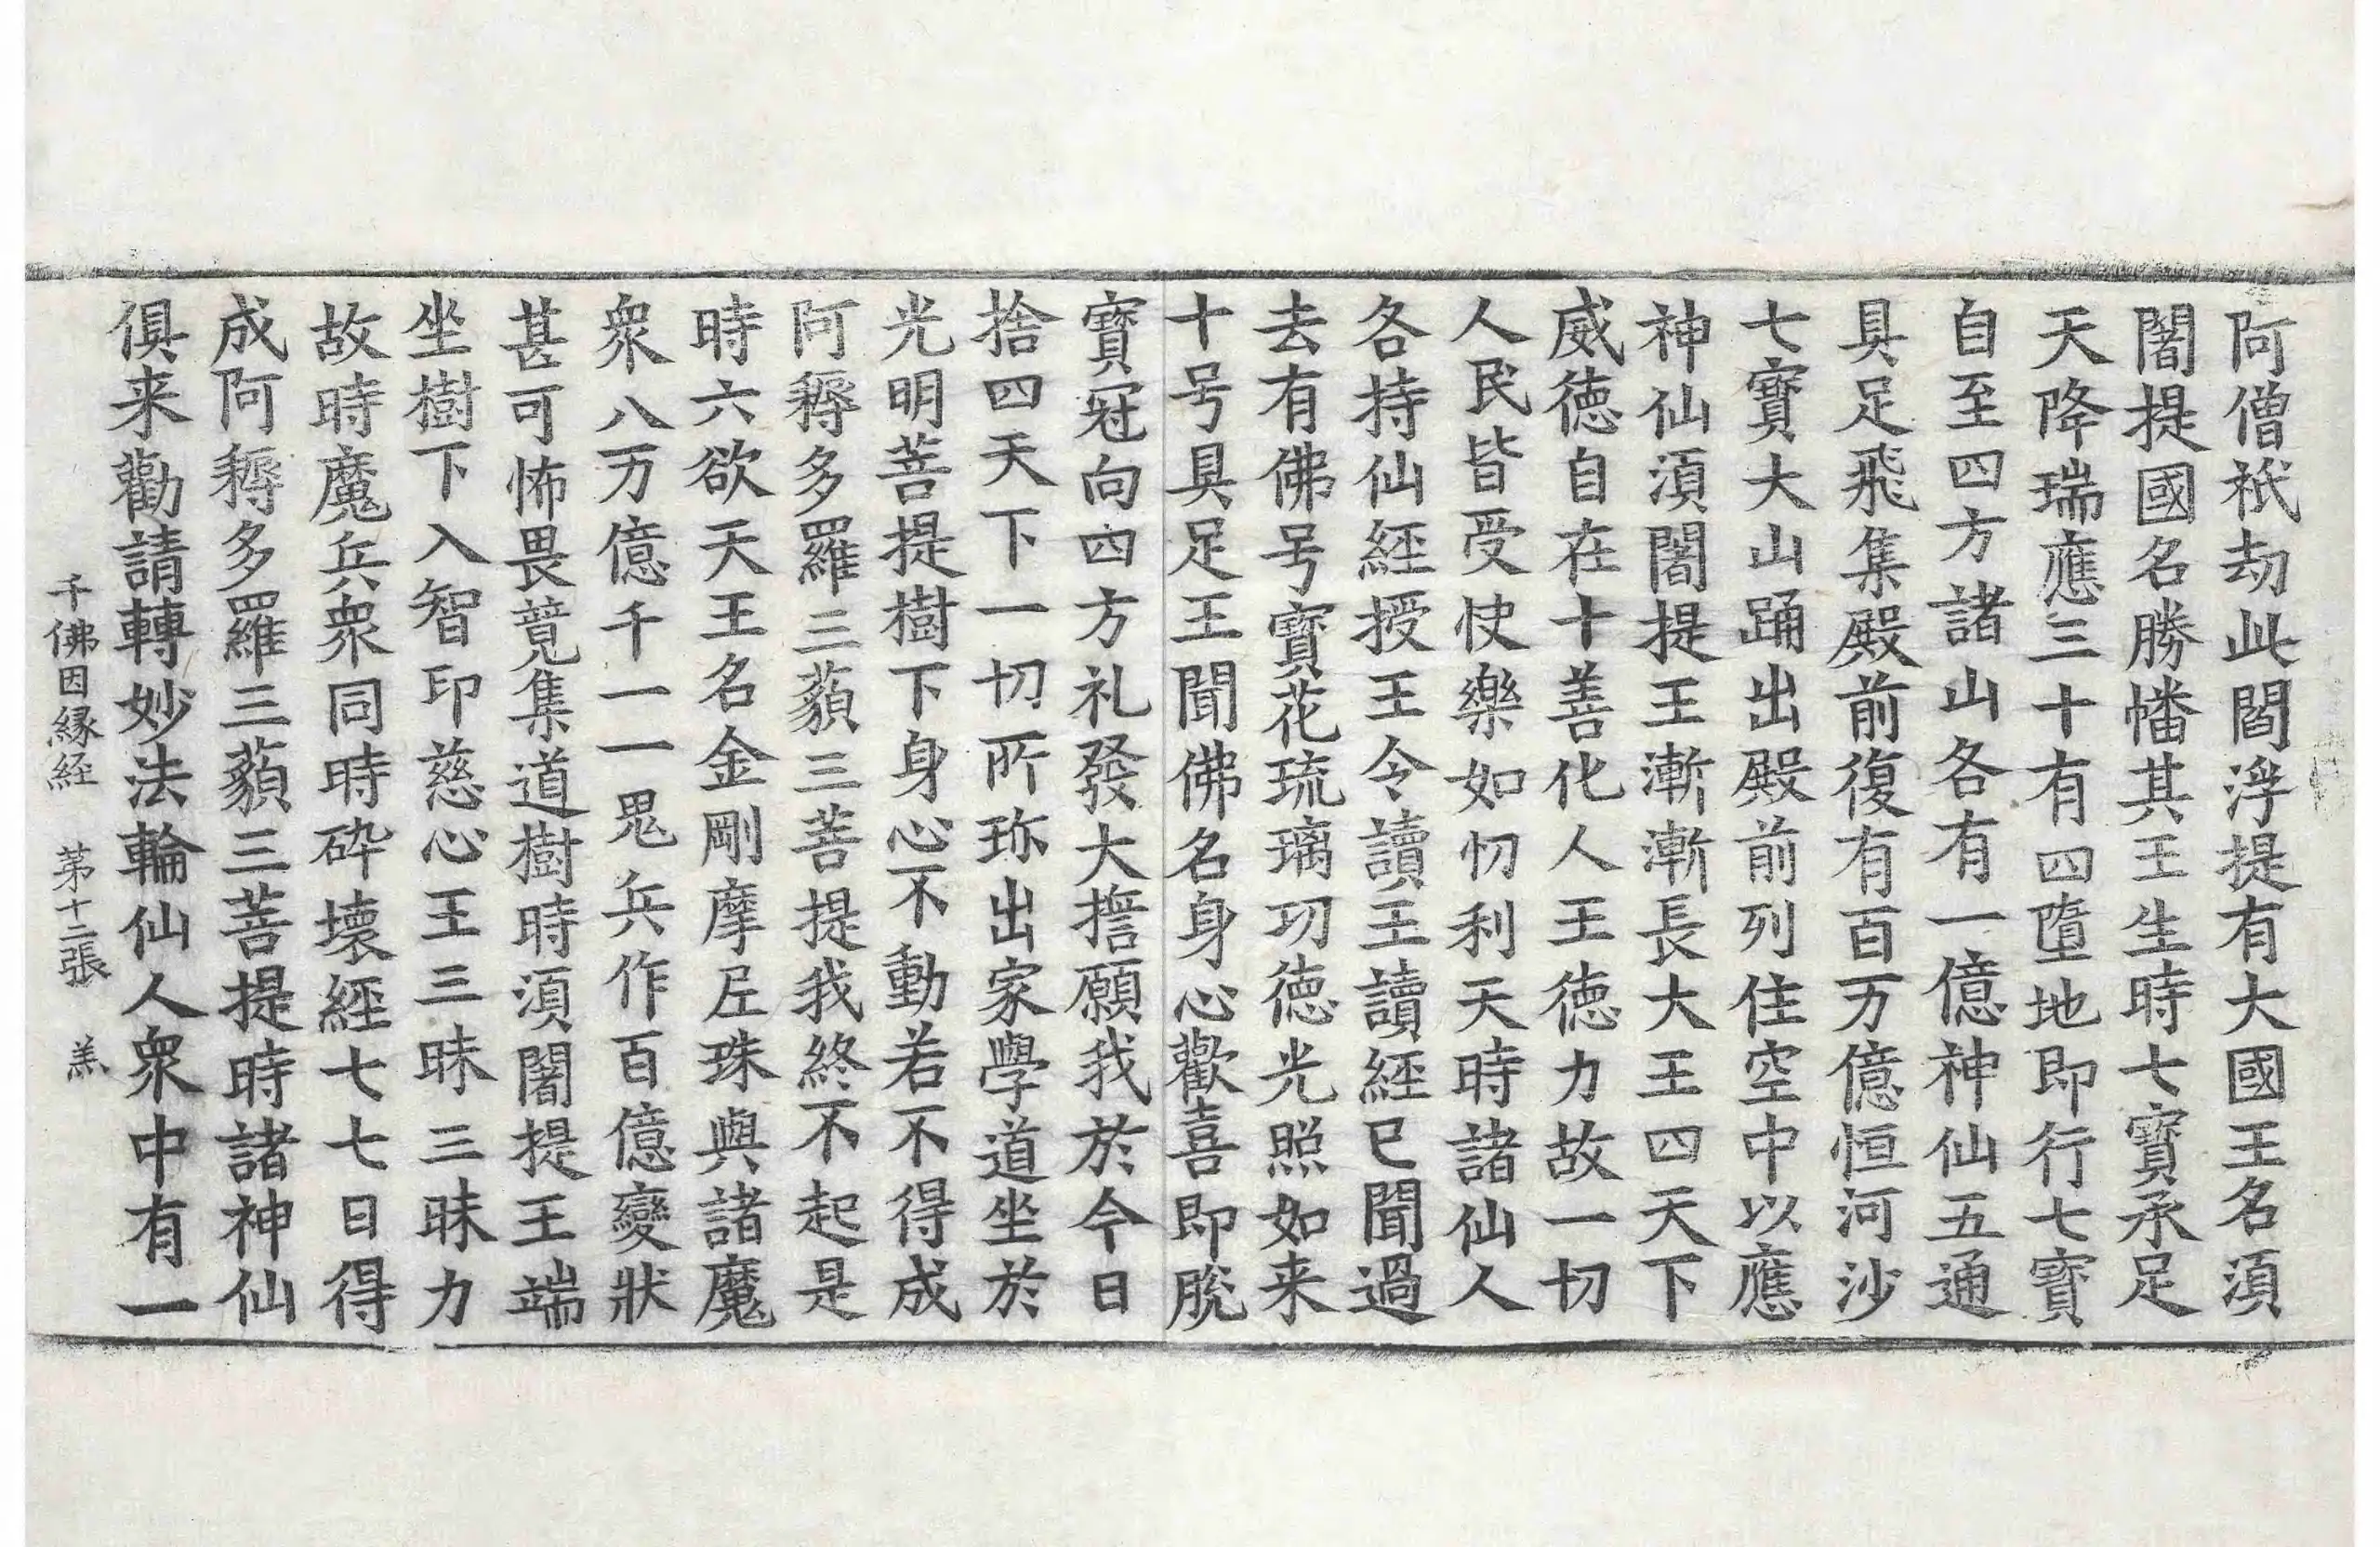 阿僧祇劫此閻浮提有大國王名湏
闍提國名勝幡其王生時七寶承足
天降瑞應三十有四墮地即行七寶
自至四方諸山各有一億神仙五通
具足飛集殿前復有百万億恒河沙
七寶大山踊出殿前列住空中以應
神仙湏闍提王漸漸長大王四天下
威徳自在十善化人王徳力故一切
人民皆受快樂如忉利天時諸仙人
各持仙經授王令讀王讀經已聞過
去有佛号寶花琉璃功徳光照如来
十号具足王聞佛名身心歡喜即脫
寶冠向四方礼發大誓願我於今日
捨四天下一切所珎出家學道坐於
光明菩提樹下身心不動若不得成
阿耨多羅三藐三菩提我終不起是
時六欲天王名金剛摩尼珠與諸魔
衆八万億千一一鬼兵作百億變狀
甚可怖畏竟集道樹時湏闍提王端
坐樹下入智印慈心王三昧三昧力
故時魔兵衆同時碎壞經七七日得
成阿耨多羅三藐三菩提時諸神仙
俱来勸請轉妙法輪仙人衆中有一
千佛因縁経 苐十二張 羔